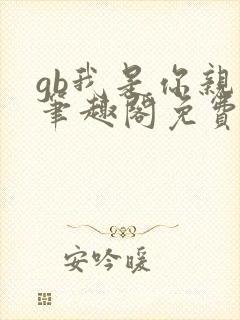 gb我是你親
筆趣閣免費
安吟暖